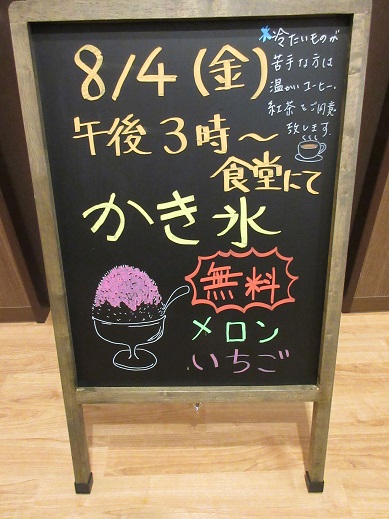 8/4(金)
午後3時～
食堂にて
かき氷
無料
メロン
いちご
冷たいものが
苦手な方は
温かいコーヒー、
紅茶をご用意
致します